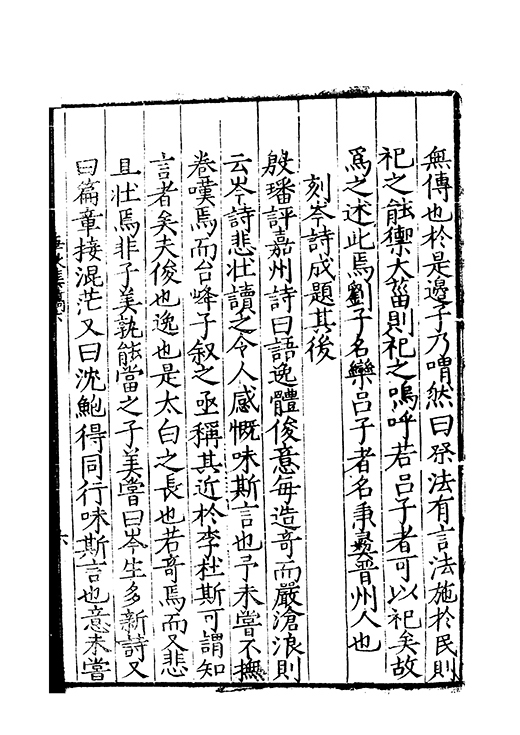 無傳也於是邊子乃喟然曰祭法有言法施於民則
祀之能禦大菑則祀之嗚呼若呂子者可以祀矣故
爲之述此焉劉子名欒呂子者名秉彝晉州人也
刻岑詩成題其後
殷璠評嘉州詩曰語逸體俊意每造奇而嚴滄浪則
云岑詩悲壯讀之令人感慨味斯言也予未嘗不撫
卷嘆焉而台峰子叙之亟稱其近於李杜斯可謂知
言者矣夫俊也逸也是太白之長也若奇焉而又悲
且壯焉非子美孰能當之子美嘗曰岑生多新詩又
曰篇章接混茫又曰沈鮑得同行味斯言也意未嘗
六